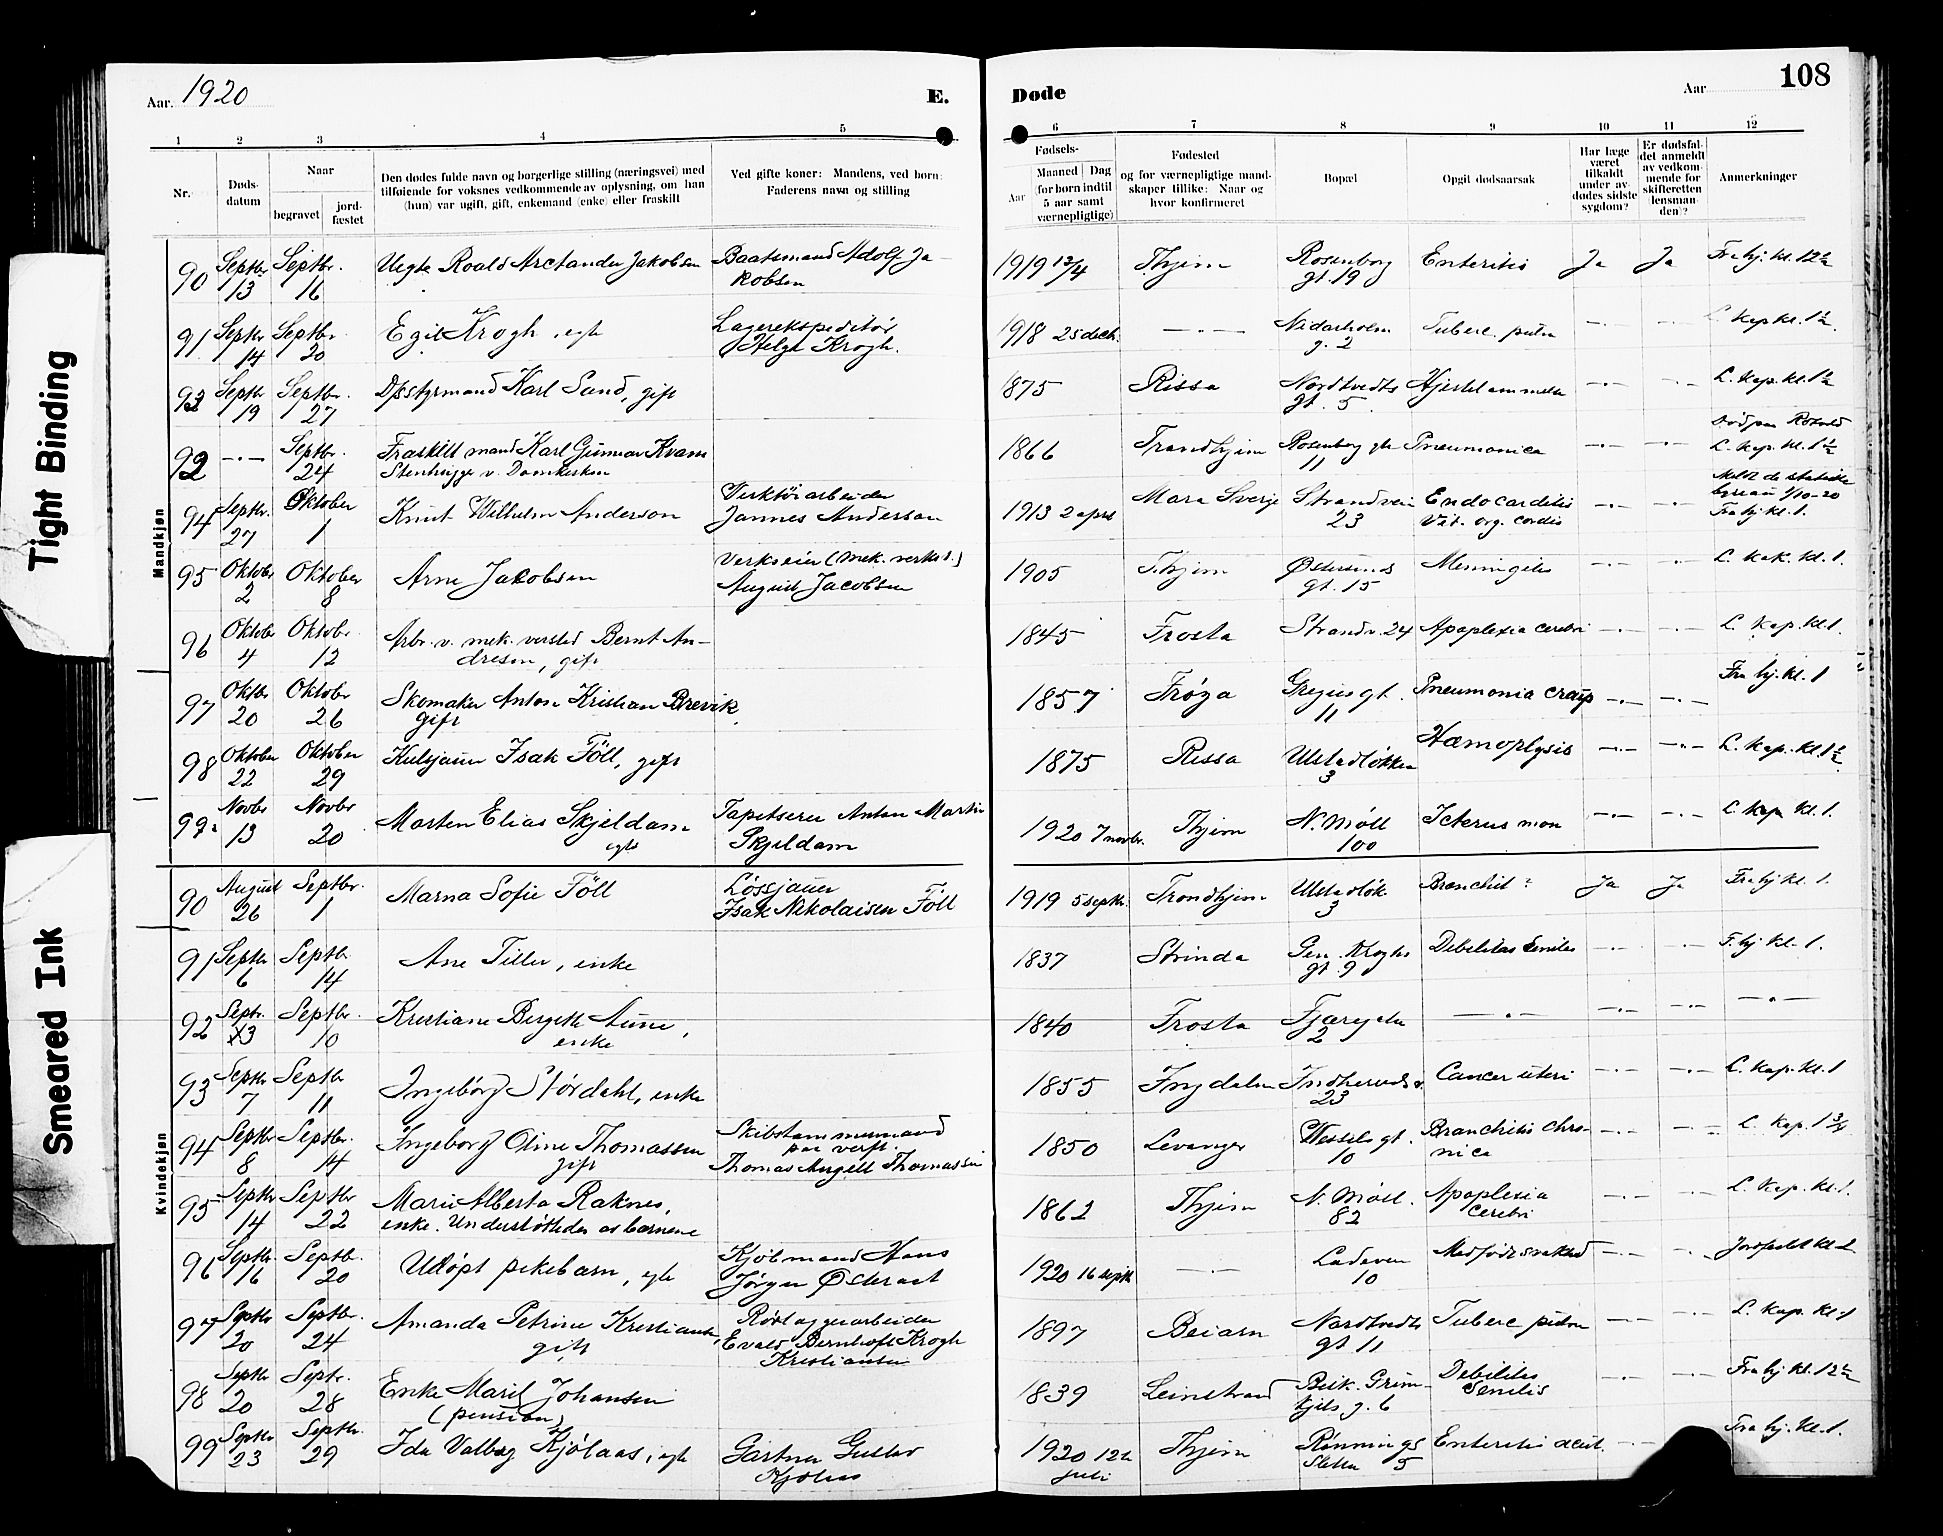 Tight Binding
Smeared Ink
Aar. 1920
E. Døde
Aar
108
1 2 3 4 5 6 7 8 9 10 11 12
Nr.
Døds-
datum
Naar
begravet
jord-
fæstet
Den dødes fulde navn og borgerlige stilling (næringsvei) med
tilføiende for voksnes vedkommende av oplysning, om han
(hun) var ugift, gift, enkemand (enke) eller fraskilt
Ved gifte koner: Mandens, ved børn:
Faderens navn og stilling
Fødsels-
Aar
Maaned Dag
(for børn indtil
5 aar samt
værnepligtige)
Fødested
og for værnepligtige mand-
skaper tillike: Naar og
hvor konfirmeret
Bopæl
Opgit dødsaarsak
Har læge
været
tilkaldt
under av-
dødes sidste
sygdom?
Er dødsfal-
det anmeldt
av vedkom-
mende for
skifteretten
(lensman-
den)?
Anmerkninger
Mandkjøn
90 Septbr. 13 Septbr. 16 Uegte Roald Arctander Jakobsen Baatsmand Adolf Ja-
kobsen 1919 13/4 Thjem Rosenborg gt. 19 Enteritis Ja Ja Fra hj. kl. 12½
91 Septbr 14 Septbr. 20 Egil Krogh, egte Lagerekspeditør
Helge Krogh. 1918 25 decbr. —·— Nidarholm g. 2 Tuberc. pulm —·— —·— L. Kap kl. 1½
93 Septbr 19 Septbr. 27 Dpsstyrmand Karl Sand, gift 1875 Rissa Nordtvedts gt. 5 Hjertelammelse —·— —·— L. Kap. kl. 1½
92 —·— Septbr. 24 Fraskilt mand Karl Gunnar Kvam
Stenhugger v. Domkirken 1866 Trondhjem Rosenborg gte 11 Pneumonica —·— —·— L. Kap. kl. 1½
94 Septbr. 27 Oktober 1 Knut Wilhelm Anderson Verktøiarbeider
Jannes Anderson 1913 2 april Mora Sverige Strandvein 23 Endocarditis
Vit. org. cordis —·— —·— Meldt de statistiske
byreau 1/10-20
Fra hj. kl. 1.
95 Oktobr 2 Oktober 8 Arne Jakobsen Verkseier (mek. verkst.)
August Jacobsen 1905 Thjem Østersunds gt. 15 Meningitis —·— —·— L. Kap. kl. 1.
96 Oktobr 4 Oktobr 12 Arb. v. mek. versted Bernt An-
dresen, gift 1845 Frosta Strandv. 24 Apoplexia cerebri —·— —·— L. Kap. kl. 1.
97 Oktbr 20 Oktobr 26 Skomaker Anton Kristian Brevik
gift 1857 Frøya 11 Pneumonia croup —·— —·— Fra hj. kl. 1
98 Oktober 22 Oktober 29 Kulsjauer Isak Föll, gift 1875 Rissa Ulstadløkken 3 Hæmoplysis —·— —·— L. Kap. kl. 1½
99 Novbr 13 Novbr 20 Morten Elias Skjeldam
egte Tapetserer Anton Martin
Skjeldam 1920 7 novbr. Thjem N. Møll 100 Icterus mon —·— —·— L. Kap kl. 1.
Kvindekjøn
90 August 26 Septbr. 1 Marna Sofie Föll Løssjauer
Isak Nikolaisen Föll 1919 5 septbr. Trondhjem Ulstadløk 3 Bronchit Ja Ja Fra hj kl. 1.
91 Septbr 6 Septbr 14 Ane Tiller, enke 1837 Strinda Gen. Kroghs gt 9 Debilitas Seniles —·— —·— F. hj kl. 1.
92 Septr. 3 Septbr. 10 Kristiane Bergitte Aune,
enke 1840 Frosta Fjæregaten 2 —·— —·— —·— —·—
93 Septbr 7 Septbr 11 Ingeborg Stördahl, enke 1855 Inydalen Indherredsv. 23 Cancer uteri —·— —·— L. Kap. kl. 1
94 Septbr 8 Septbr. 14 Ingeborg Oline Thomassen
gift Skibstømmermand
paa verft
Thomas Angell Thomassen 1850 Levanger Wessels gt. 10 Bronchitis chro-
nica —·— —·— L. Kap. 1¾
95 Septbr 14 Septbr 22 Marie Alberta Raknes,
enke. Understøttedes av barnene 1862 Thjem N. Møll. 82 Apoplexia
cerebri —·— —·— L. Kap. kl. 1.
96 Septbr. 16 Septbr. 20 Udøpt pikebarn, egte Kjøbmand Hans
Jørgen Østeraas 1920 16 septbr —·— Ladeveien 10 Medfødt svakhed —·— —·— Jordfæstet kl 2
97 Septbr 20 Septbr. 24 Amanda Petrine Kristiansen,
gift Rørlæggerarbeider
Evald Bernhoft Krogh
Kristiansen 1897 Beiarn Nordtvedts gt 11 Tuberc pulm —·— —·— L. Kap. kl. 1
98 Septbr 20 Septr. 28 Enke Marit Johansen
(pension) 1839 Leinstrand Beik. Grim-
kjels g. 6 Debilitas
senilis —·— —·— Fra hj kl. 12½
99 Septbr 23 Septbr. 29 Ida Valborg Kjölaas, egte Gartner Gustav
Kjölaas 1920 12te
juli Thjem Rønnings
sletten 5 Enteritis acut. —·— Fra hj. kl. 1.